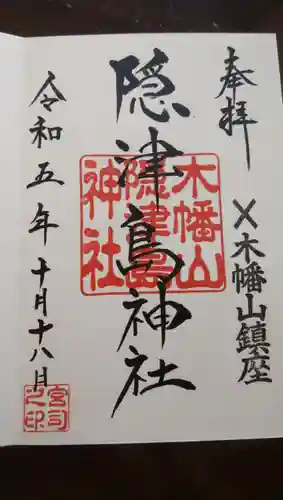 奉拝
×木幡山鎮座
隠津島神社
木幡山
隠津島
神社
令和五年十月十八月
宮司之印